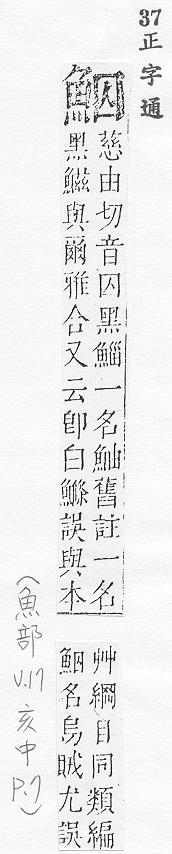 37
正字通
鮂
慈由切音囚黑鯔一名鮋舊註一名
黑鰦與爾雅合又云卽白鰷誤與本
艸綱目同類編
鮂名烏賊尤誤
(魚部
V.17
亥中
P.7)